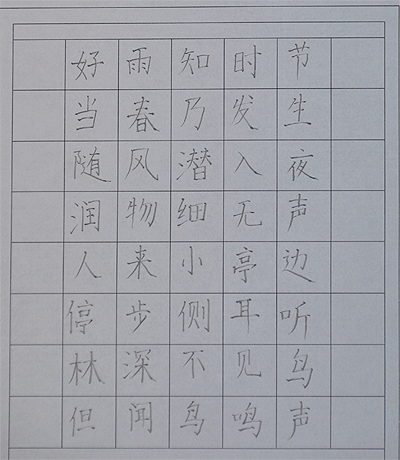 好雨知时节
当春乃发生
随风潜入夜
润物细无声
人来小亭边
停步侧耳听
林深不见鸟
但闻鸟鸣声